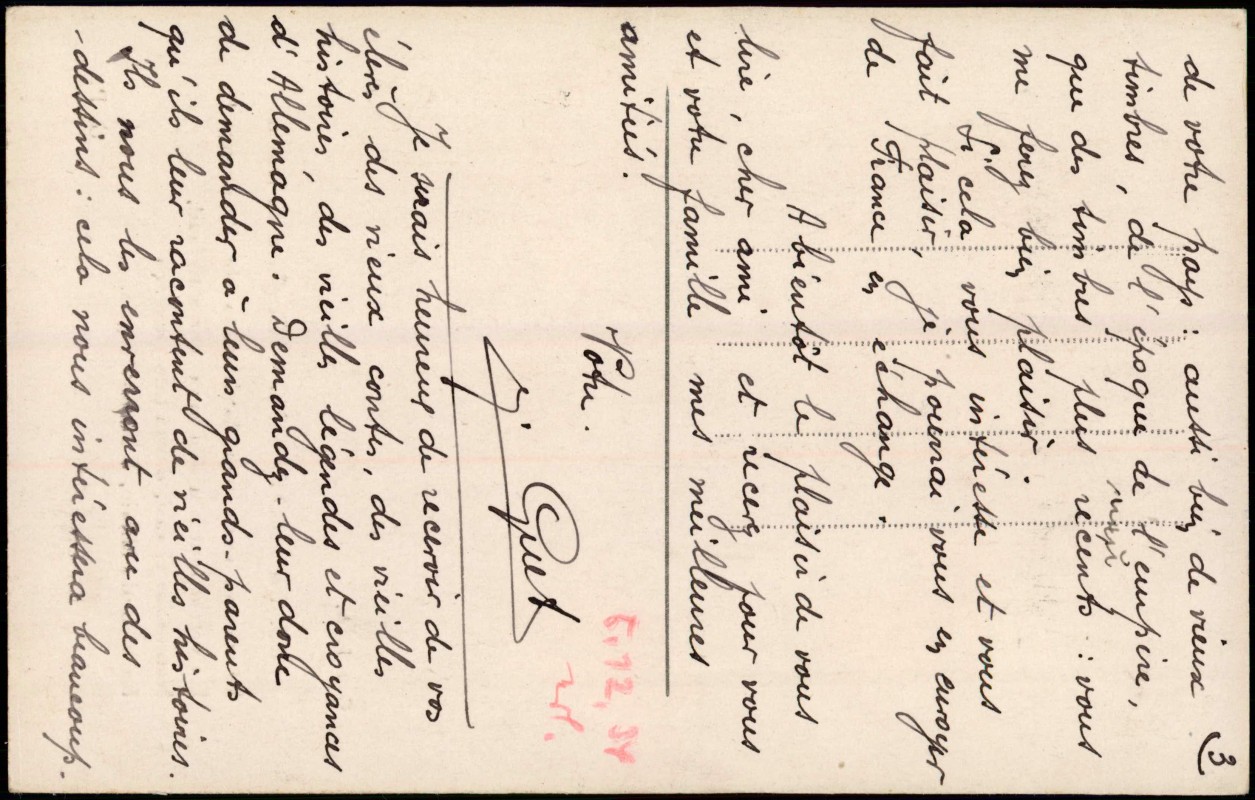 3
de votre pays : aussi bien de vieux
timbres, de l'époque de l'empire,
que des timbres plus récents : vous
me ferez bien plaisir.
Si cela vous intéresse et vous
fait plaisir, je pourrai vous en envoyer
de France en échange.
A bientôt le plaisir de vous
lire, cher ami et recevez pour vous
et votre famille mes meilleures
amitiés.
Votre.
5.12.34
Je serais heureux de recevoir de vos
élèves des vieux contes, des vieilles
histoires, des vieilles légendes et croyances
d'Allemagne. Demandez-leur donc
de demander à leurs grands-parents
qu'ils leur racontent de vieilles histoires.
Ils nous les enverront avec des
-dessins : cela nous intéressera beaucoup.